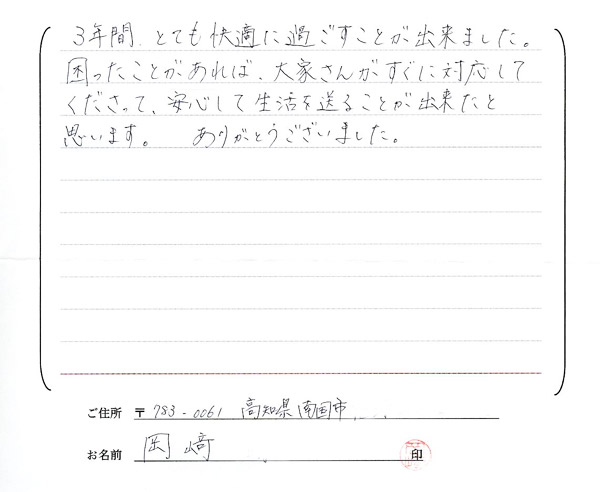 3年間、とても快適に過ごすことが出来ました。
困ったことがあれば、大家さんがすぐに対応して
くださって、安心して生活を送ることが出来たと
思います。 ありがとうございました。
ご住所 〒783-0061 高知県南国市
お名前 岡﨑 印